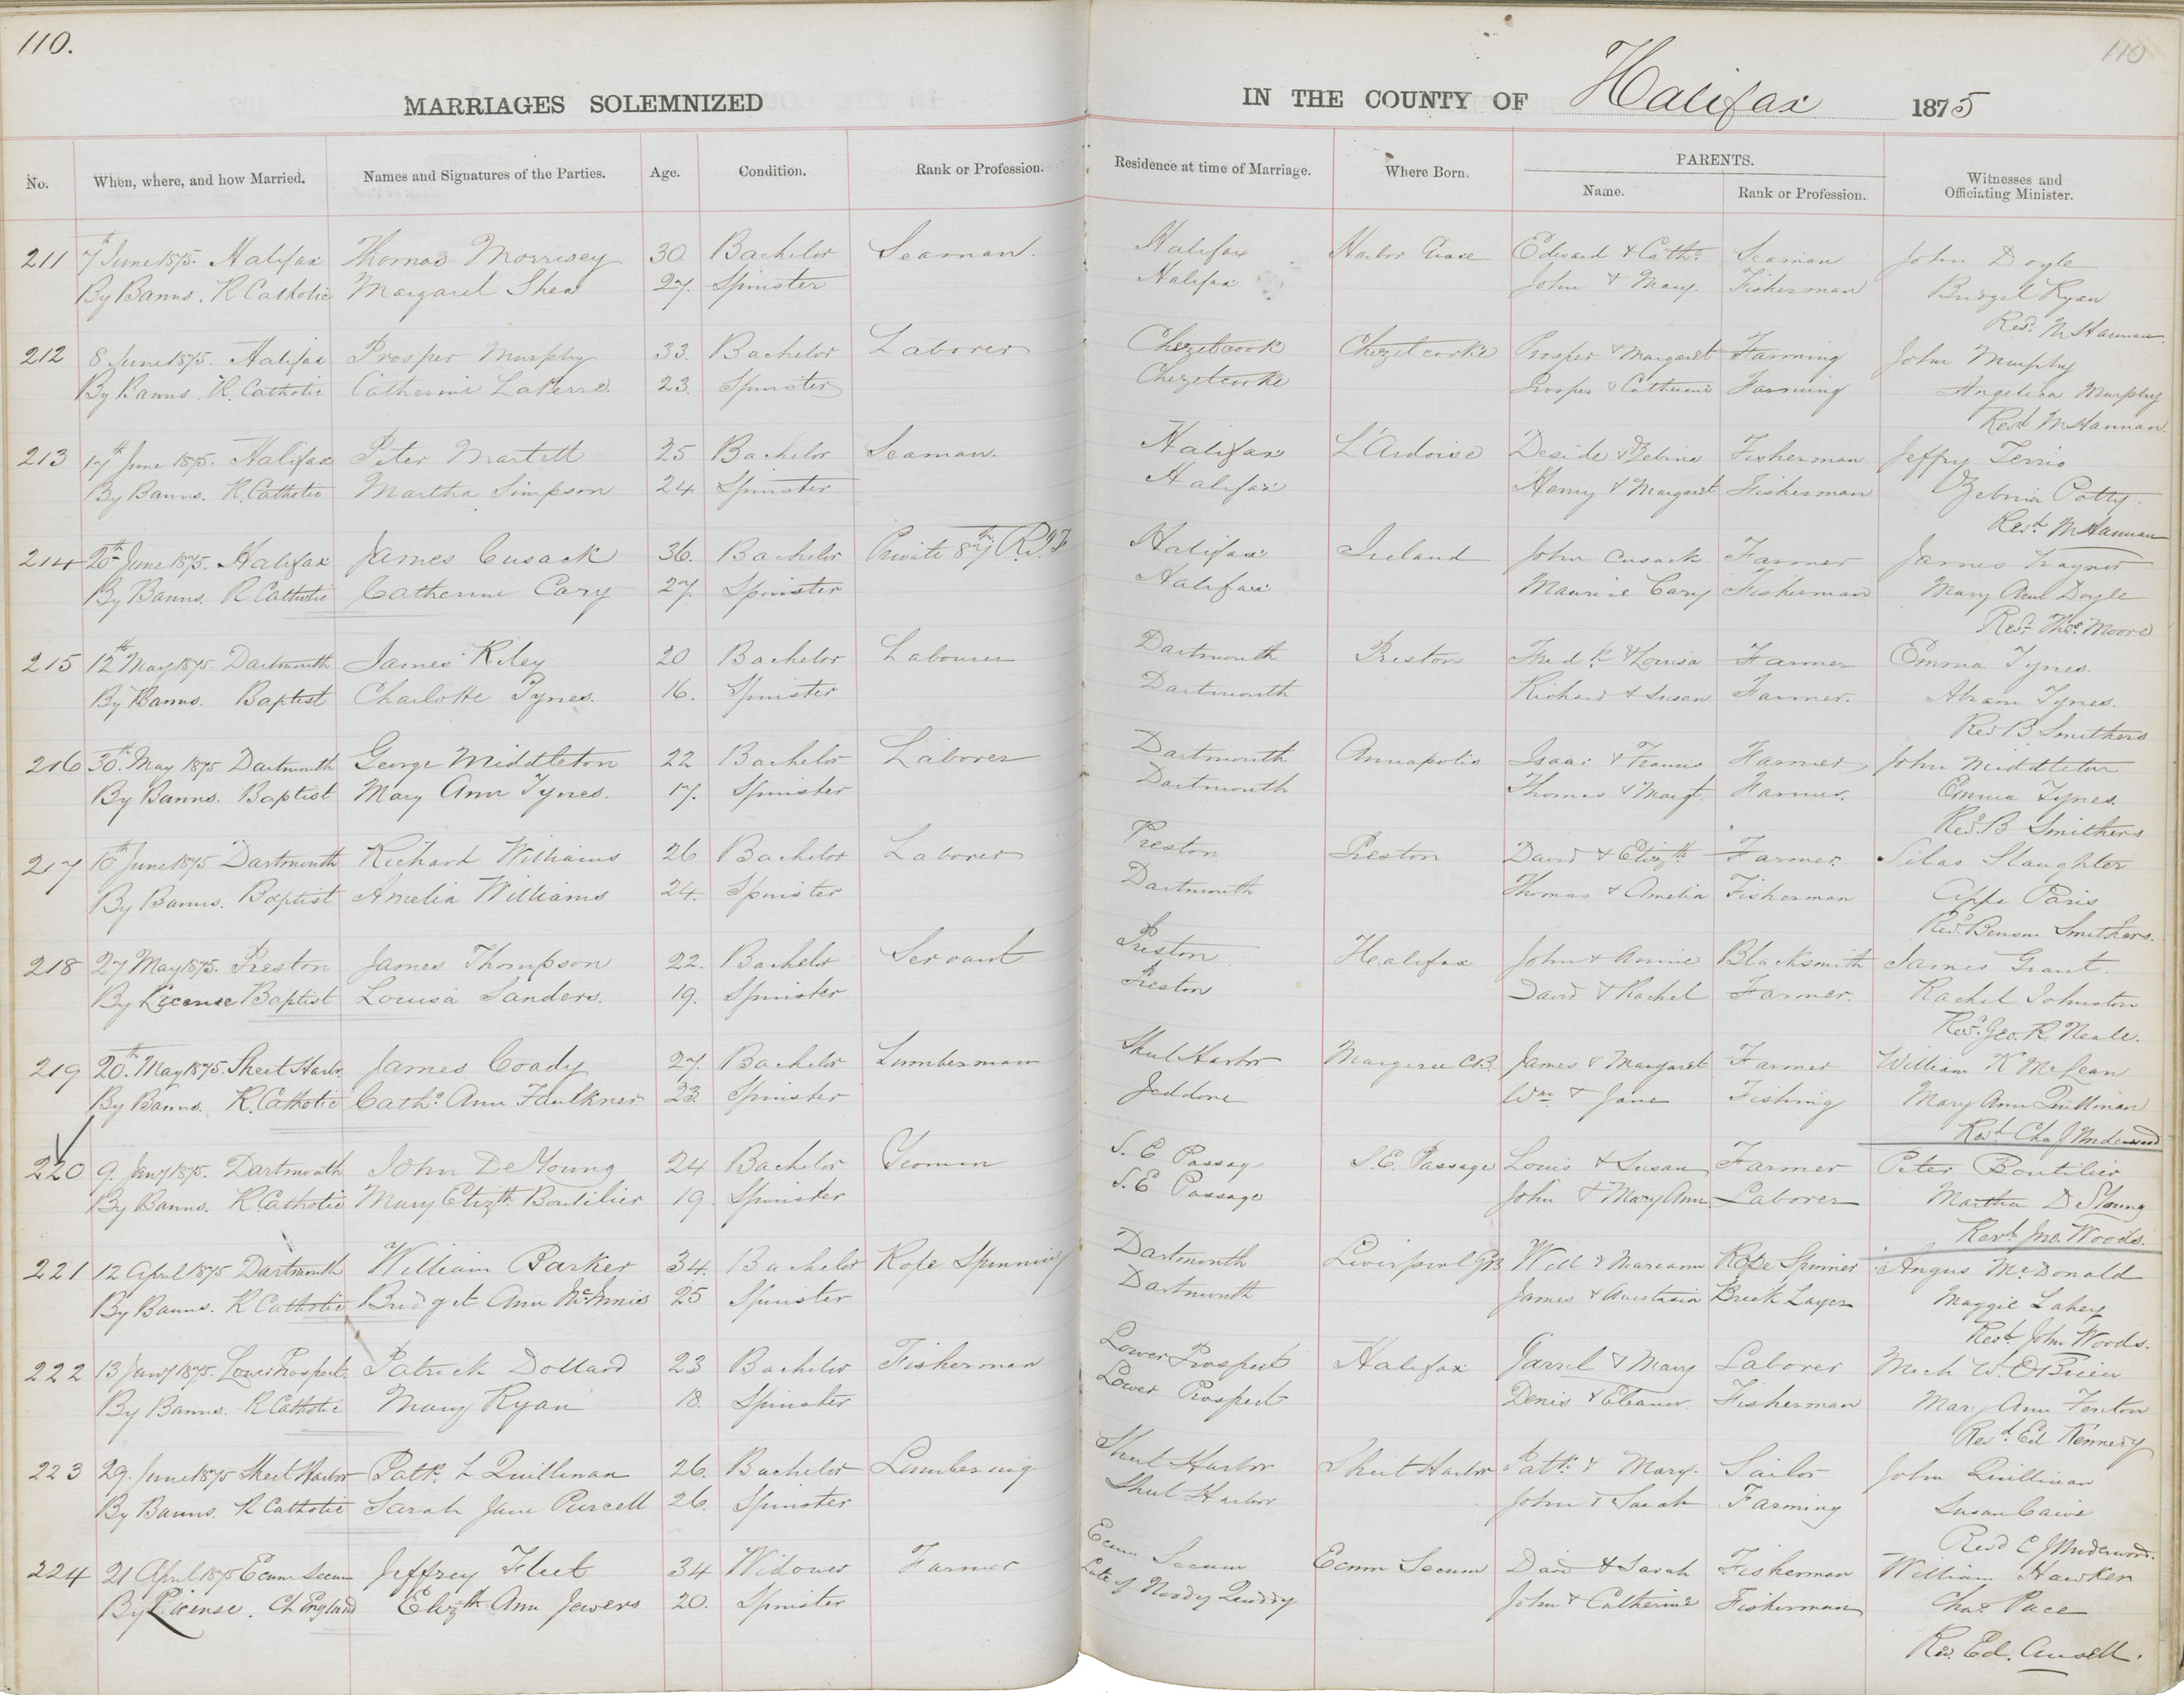 110.
110
MARRIAGES SOLEMNIZED IN THE COUNTY OF Halifax 1875
No. When, where, and how Married. Names and Signatures of the Parties. Age. Condition. Rank or Profession. Residence at time of Marriage. Where Born. PARENTS. Name. Rank or Profession. Witnesses and Officiating Minister.
211 7th June 1875. Halifax Thomas Morrisey 30 Bachelor Seaman. Halifax Harbor Grace Edward & Cathe Seaman John Doyle
By Banns. R Catholic Margaret Shea 27. Spinster Halifax John & Mary. Fisherman Bridget Ryan
Revd. M Hannan.
212 8 June 1875. Halifax Prosper Murphy 33. Bachelor Laborer Chezetcook Chezetcooke Prosper & Margaret Farming John Murphy
By Banns. R. Catholic Catherine LaPerre. 23. Spinster Chezetcooke Prosper & Catherine Farming Angelica Murphy
Revd M Hannan.
213 17th June 1875. Halifax Peter Martell 25 Bachelor Seaman. Halifax L'Ardoise Deside & Zebine Fisherman Jeffry Terrio
By Banns. R Catholic Martha Simpson 24 Spinster Halifax Henry & Margaret Fisherman Potty.
Revd. M Hannan
214 20th June 1875. Halifax James Cusack 36. Bachelor Private 87th R.I.F Halifax Ireland John Cusack Farmer James Traynor
By Banns. R Catholic Catherine Cary 27. Spinster Halifax Maurice Cary Fisherman Mary Ann Doyle
Revd. Thos. Moore
215 12th May 1875. Dartmouth James Riley 20 Bachelor Labourer Dartmouth Preston Fredk & Louisa Farmer Emma Tynes.
By Banns. Baptist Charlotte Tynes. 16. Spinster Dartmouth Richard & Susan Farmer. Abram Tynes.
Revd B Smithers
216 30th. May 1875 Dartmouth George Middleton 22 Bachelor Laborer Dartmouth Annapolis Isaac & Francis Farmer John Middleton
By Banns. Baptist Mary Ann Tynes. 17. Spinster Dartmouth Thomas & Margt. Farmer. Emma Tynes.
Revd. B Smithers
217 10th June 1875 Dartmouth Richard Williams 26 Bachelor Laborer Preston Preston David & Elizth Farmer. Silas Slaughter
By Banns. Baptist Amelia Williams 24. Spinster Dartmouth Thomas & Amelia Fisherman Paris
Revd. Benson Smithers.
218 27 May 1875. Preston James Thompson 22. Bachelor Servant Preston Halifax John & Annie Blacksmith James Grant.
By License Baptist Louisa Sanders. 19. Spinster Preston David & Rachel Farmer. Rachel Johnston
Revd. Geo. R Neale.
219 20th. May 1875. Sheet Harbr. James Coady 27. Bachelor Lumberman Sheet Harbor Margeree CB. James & Margaret Farmer William K McLean
By Banns. R. Catholic Cathe. Ann Faulkner 23. Spinster Jeddore Wm & Jane Fishing Mary Ann Quillinan
Revd. Chas J Underwood
220 9. Jany 1875. Dartmouth John De Young 24 Bachelor Yeoman S. E Passage S.E. Passage Louis & Susan Farmer Peter Boutilier
By Banns. R. Catholic Mary Elizth. Boutilier 19. Spinster S. E Passage John & Mary Ann. Laborer Martha DeYoung
Revd. Jno. Woods.
221 12 April 1875 Dartmouth William Barker 34. Bachelor Rope Spinning Dartmouth Liverpool GB Will & Mareann Rope Spinner Angus McDonald
By Banns. R Catholic Bridget Ann McInnis 25 Spinster Dartmouth James & Anestasia Brick Layer Maggie Lahey
Revd. John Woods.
222 13 Jany 1875. Lower Prospect. Patrick Dollard 23 Bachelor Fisherman Lower Prospect Halifax Garret & Mary Laborer Mich W. OBrien
By Banns. R Catholic Mary Ryan 18. Spinster Lower Prospect Denis & Eleanor. Fisherman Mary Ann Fenton
Revd. Ed Kennedy
223 29. June 1875 Sheet Harbor Patk. L Quillinan 26. Bachelor Lumbering Sheet Harbor Sheet Harbor Patk. & Mary. Sailor John Quillinan
By Banns. R Catholic Sarah Jane Purcell 26. Spinster Sheet Harbor John & Sarah Farming Susan
Revd C J Underwood.
224 21 April 1875 Ecum Secum Jeffrey Fleet 34 Widower Farmer Ecum Secum Ecum Secum David & Sarah Fisherman William Hawken
By License. Ch England Elizth Ann Jewers 20. Spinster Late of Moody Quiddy John & Catherine Fisherman Chas. Pace
Rev. Ed. Ansell.